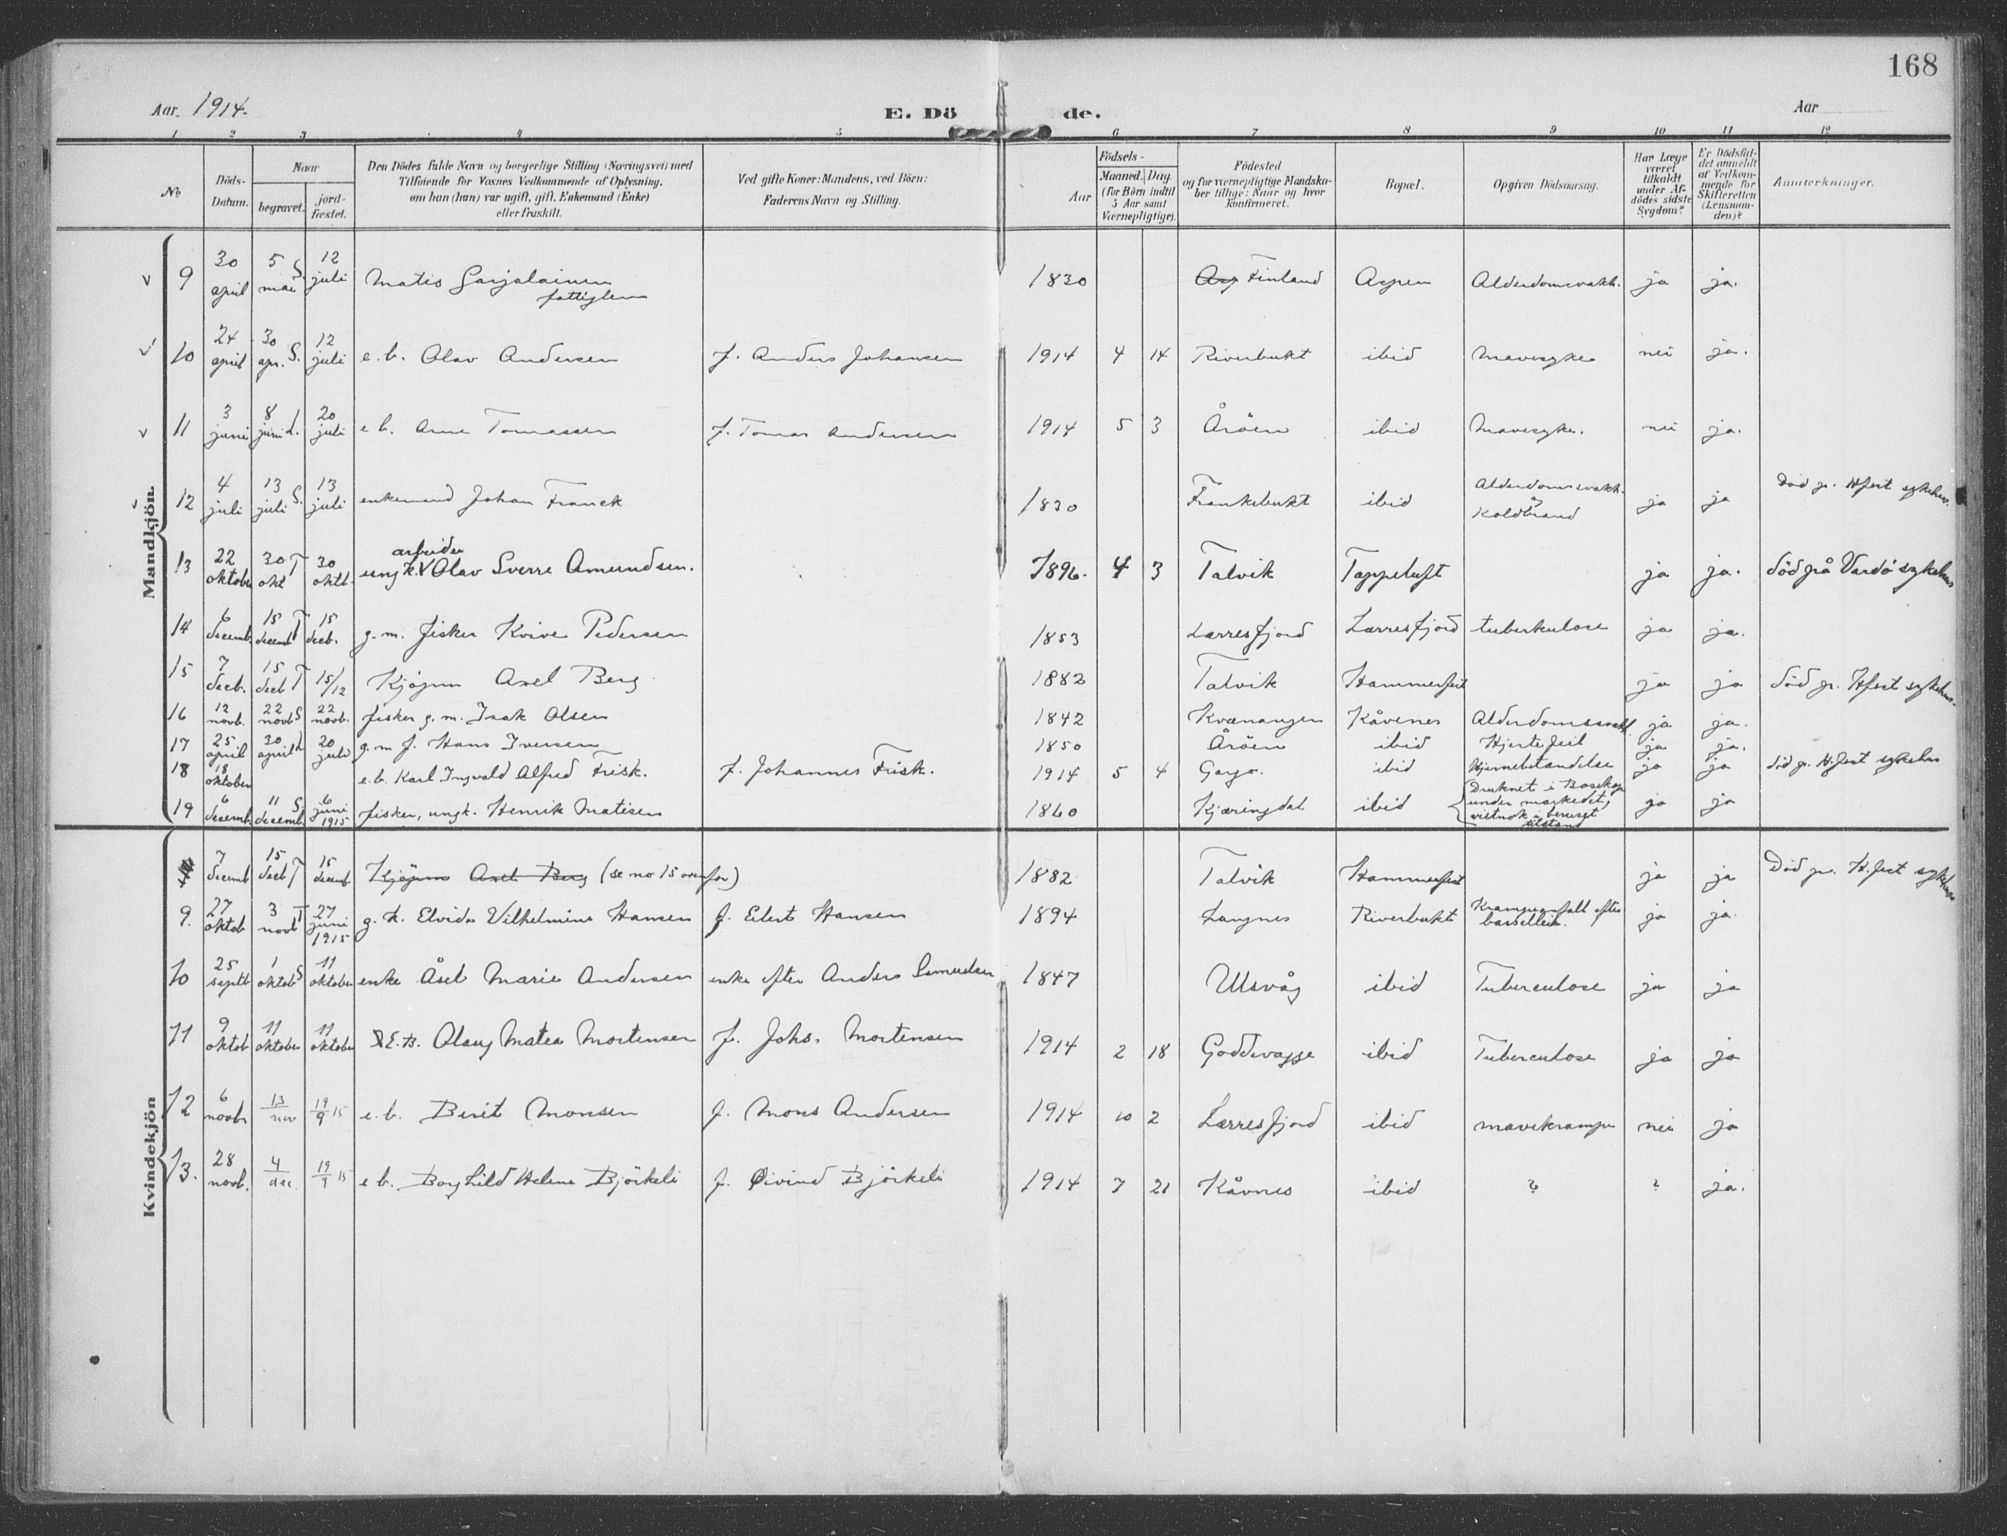 168
Aar. 1914.
E. Dö de.
Aar
1 2 3 4 5 6 7 8 9 10 11 12
No
Döds-Datum.
Naar
begravet.
jordfæstet.
Den Dödes fulde Navn og borgerlige Stilling (Næringsvei) med
Tilföiende for Voxnes Vedkommende af Oplysning,
om han (hun) var ugift, gift, Enkemand (Enke)
eller fraskilt.
Ved gifte Koner: Mandens, ved Börn:
Faderens Navn og Stilling.
Födsels-
Aar
Maaned. Dag.
(for Börn indtil
5 Aar samt
Værnepligtige).
Födested
og for værnepligtige Mandskaber tillige: Naar og hvor
konfirmeret.
Bopæl.
Opgiven Dödsaarsag.
Har Læge
været
tilkaldt
under Afdödes sidste
Sygdom?
Er Dödsfaldet anmeldt
af Vedkommende for
Skifteretten
(Lensmanden)?
Anmærkninger.
Mandkjön.
9 30 april 5 mai S. 12 juli Matis 1830 Finland Aspen Alderdomsvakh. ja ja.
10 24 april 30 apr. S. 12 juli e.b. Olav Andersen f. Anders Johansen 1914 4 14 Riverbukt ibid Mavesyke nei ja.
11 3 juni 8 juni L. 20 juli e.b. Arne Tomassen f. Tomas Andersen 1914 5 3 Åröen ibid Mavesyke. nei ja.
12 4 juli 13 juli S. 13 juli enkemand Johan Franck 1830 Frankebukt ibid Alderdomsvakh. og Koldbrand ja ja Död på Hfest sykehus.
13 22 oktober 30 okt T 30 oktb. ungk. arbeider Olav Sverre Amundsen. 1896. 4 3 Talvik Tappeluft ja ja. död på Vardö sykehus
14 6 decemb. 15 decemb T 15 decb. g.m. fisker Kvive Pedersen 1853 Lerresfjord Lerresfjord tuberkulose ja ja.
15 7 decb. 15 decb T 15/12 Axel Berg 1882 Talvik Hammerfest ja ja död på Hfest sykehus.
16 12 novb. 22 novb S 22 novb. fisker g.m. Isak Olsen 1842 Kvænangen Kåvnes Alderdomssvakh ja ja.
17 25 april 30 april L 20 juli g.m. f. Hans Iversen 1850 Åröen ibid Hjertefeil ja ja.
18 18 oktober e.b. Karl Ingvald Alfred Frisk. f. Johannes Frisk. 1914 5 4 Gargo. ibid Hjernebetændelse ja ja död på Hfest sykehus
19 6 desemb. 11 decemb. S 6 juni 1915 fisker, ungk. Henrik Matisen 1860 Kjæringdal ibid Druknet i Bosekop under markedet, vistnok i beruset tilstand ja ja
Kvindekjön
7 decemb 15 decb T 15 decemb Axel Berg (se no 15 ovenfor) 1882 Talvik Hammerfest ja ja Död på H.fest sykehus
9. 27 oktob 3 novb T 27 juni 1915 g.k. Elvida Vilhelmine Hansen g. Edert Hansen 1894 Langnes Riverbukt Krampeanfall efter barselleie. ja ja.
10 25 septb 1 oktob S 11 oktober enke Åsel Marie Andersen enke efter Anders Samuelsen 1847 Ulsvåg ibid Tuberculose ja ja
11 9 oktob 11 oktober 11 oktober E.B. Olaug Matea Mortensen f. Johs. Mortensen 1914 2 18 Goddevagge ibid Tuberculose ja ja
12 6 novb 13/nov 19/9 15 e.b. Berit Monsen f. Mons Andersen 1914 10 2 Lerresfjord ibid mavekrampe nei ja
13. 28 novb. 4/dec. 19/9 15 e.b. Borghild Helene Björkeli f. Øivind Björkeli 1914 7 21 Kåvnes ibid ? ? ja.